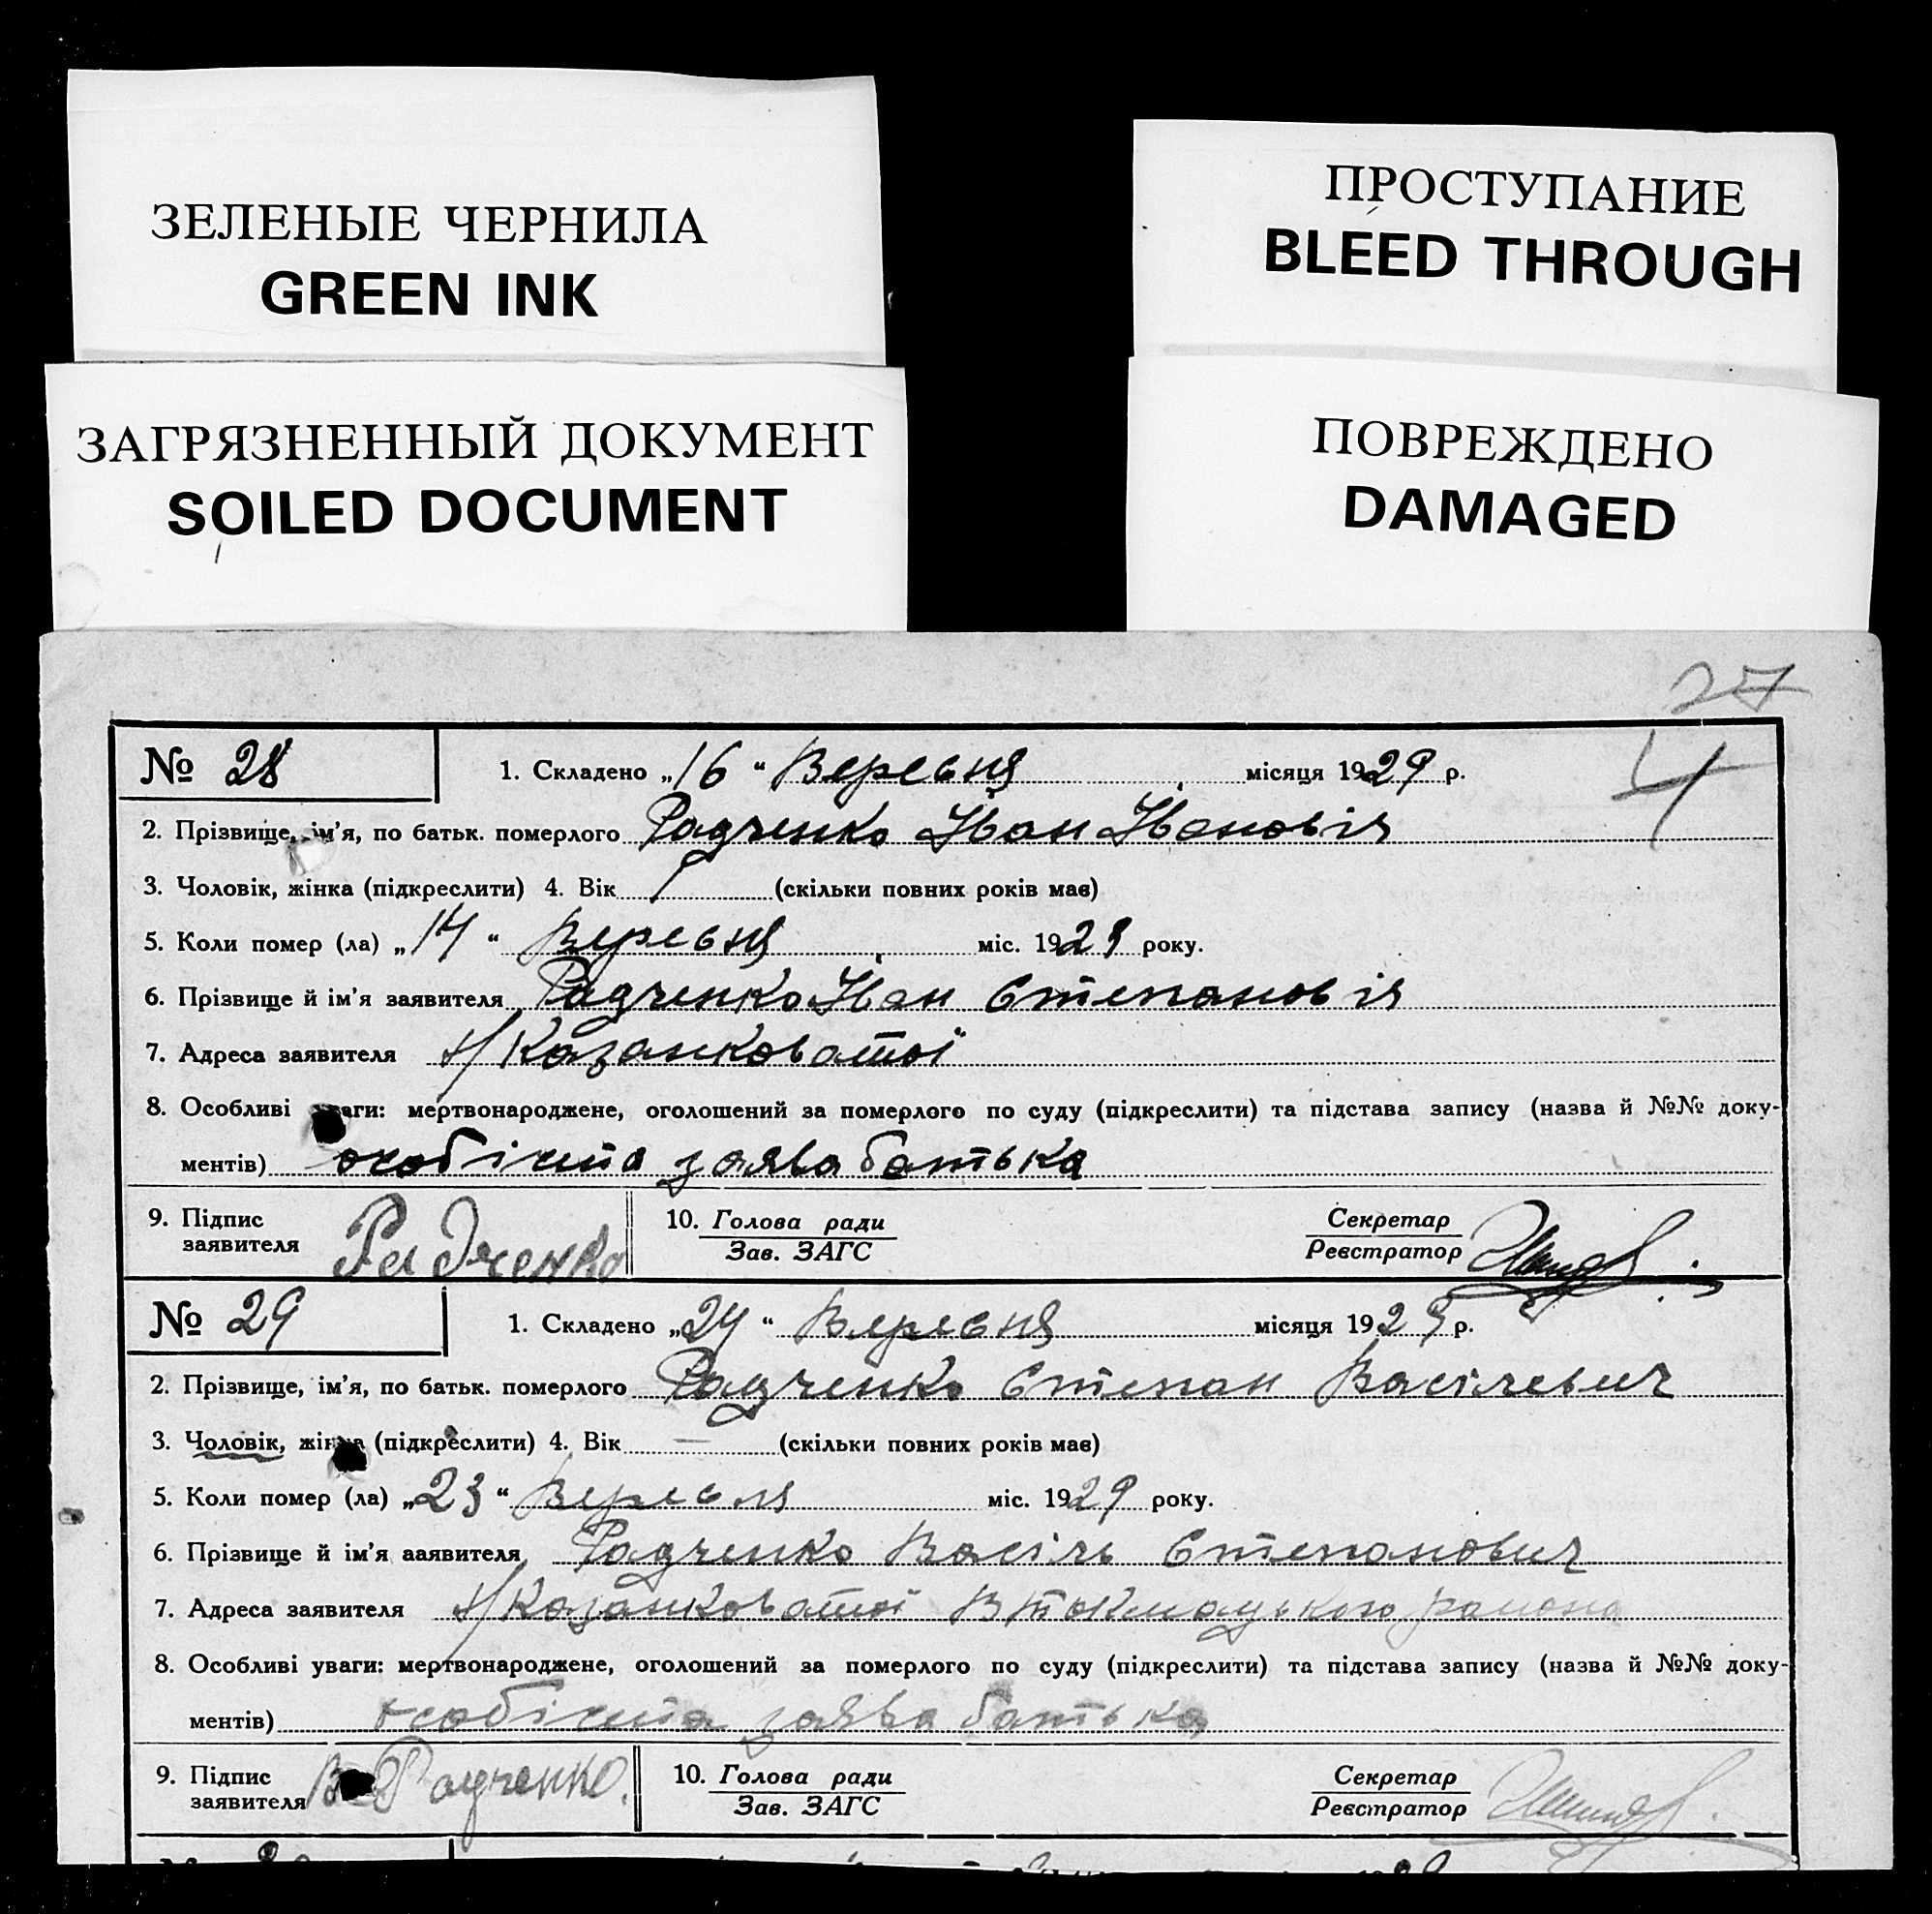 ЗЕЛЕНЫЕ ЧЕРНИЛА
GREEN INK
ПРОСТУПАНИЕ
BLEED THROUGH
ЗАГРЯЗНЕННЫЙ ДОКУМЕНТ
SOILED DOCUMENT
ПОВРЕЖДЕНО
DAMAGED
27
4
№ 28 1. Складено „16“ Вересня місяця 1929 р.
2. Прізвище, ім’я, по батьк. померлого Радченко Іван Іванович
3. Чоловік, жінка (підкреслити) 4. Вік 1 (скільки повних років має)
5. Коли помер (ла) „14“ Вересня міс. 1929 року.
6. Прізвище й ім’я заявителя Радченко Іван Степанович
7. Адреса заявителя х/Казанковатої
8. Особливі уваги: мертвонароджене, оголошений за померлого по суду (підкреслити) та підстава запису (назва й №№ доку-
ментів) особіста заява батька
9. Підпис заявителя Радченко 10. Голова ради Секретар
Зав. ЗАГС Реєстратор
№ 29 1. Складено „24“ Вересня місяця 1929 р.
2. Прізвище, ім’я, по батьк. померлого Радченко Степан Васілевич
3. Чоловік, жінка (підкреслити) 4. Вік — (скільки повних років має)
5. Коли помер (ла) „23“ Вересня міс. 1929 року.
6. Прізвище й ім’я ааявителя Радченко Васіль Степанович
7. Адреса заявителя х/Казанковатої В Токмацького района
8. Особливі уваги: мертвонароджене, оголошений за померлого по суду (підкреслити) та підстава запису (назва й №№ доку-
ментів) особіста заява батька
9. Підпис заявителя В Радченко. 10. Голова ради Секретар
Зав. ЗАГС Реєстратор